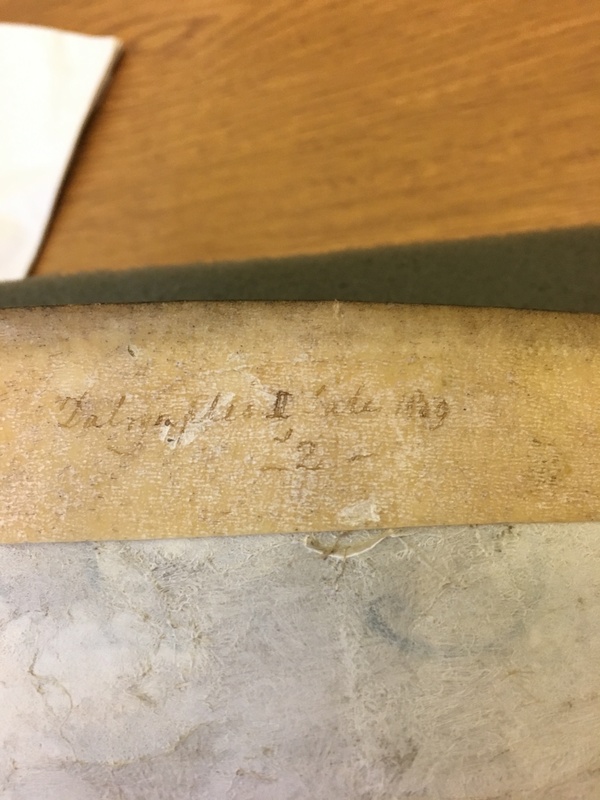 Dalrymples II Sale 1809
2